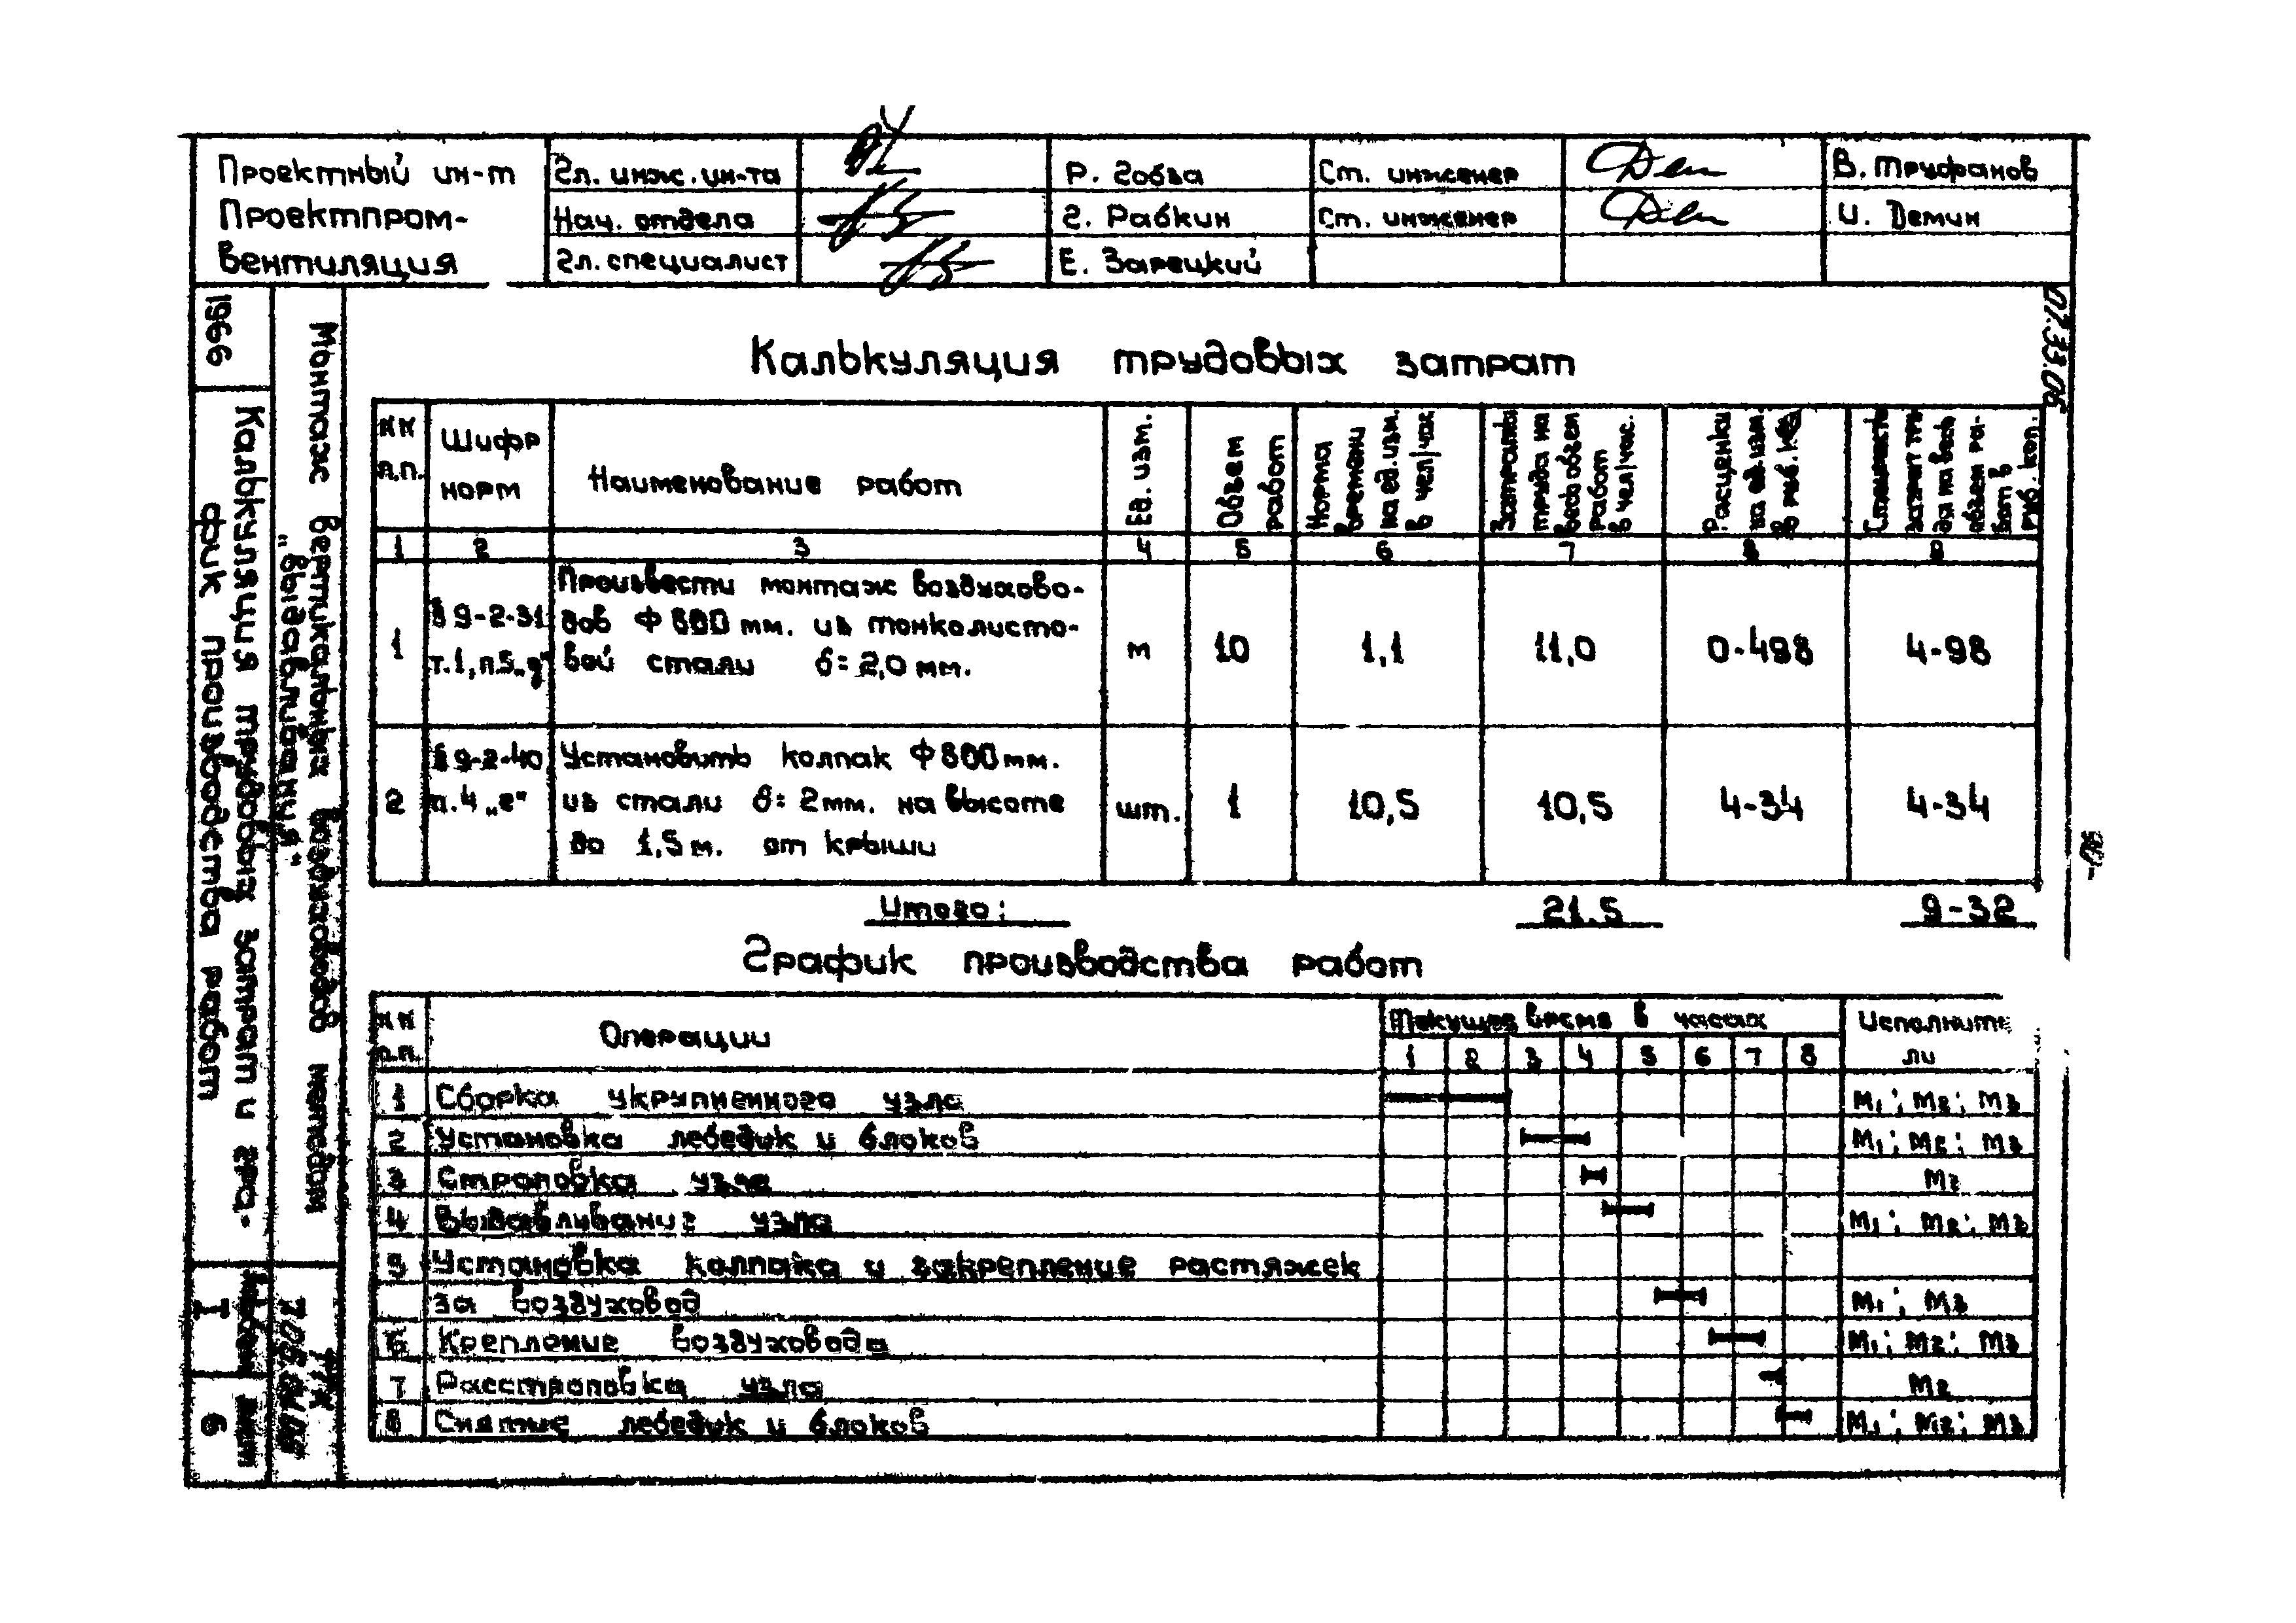 Проектный ин-т
Проектпром-
вентиляция
Гл. инж. ин-та
Р. Гобза
Ст. инженер
В. Труфанов
Нач. отдела
Г. Рабкин
Ст. инженер
И. Демин
Гл. специалист
Е. Зарецкий
1966
Калькуляция трудовых затрат и гра-
фик производства работ
Монтаж вертикальных воздуховодов методом
„выдавливания“
07.33.06
Калькуляция трудовых затрат
NN п.п.
Шифр норм
Наименование работ
Ед. изм.
Объем работ
Норма времени на ед. изм. в чел/час
Затраты труда на весь объем работ в чел/час.
Расценки на ед. изм. в руб.
Стоимость затрат тру- да на весь объем ра- бот в руб. коп.
1 2 3 4 5 6 7 8 9
Произвести монтаж воздухово-
1 § 9-2-31 дов Ф 800 мм. из тонколисто- м 10 1,1 11,0 0-498 4-98
т.1, п.5„д“ вой стали б= 2,0 мм.
§ 9-2-40 Установить колпак Ф 800 мм.
2 п.4 „г“ из стали б= 2 мм. на высоте шт. 1 10,5 10,5 4-34 4-34
до 1,5 м. от крыши
Итого: 21.5 9-32
График производства работ
NN п.п.
Операции
Текущее время в часах
Исполните
ли
1 2 3 4 5 6 7 8
1 Сборка укрупненного узла М1; М2; М3
2 Установка лебедик и блоков М1; М2; М3
3 Строповка узла М2
4 Выдавливание узла М1; М2; М3
5 Установка колпака и закрепление растяжек
за воздуховод М1; М3
6 Крепление воздуховода М1; М2; М3
7 Расстроповка узла М2
8 Снятие лебедик и блоков М1; М2; М3
6